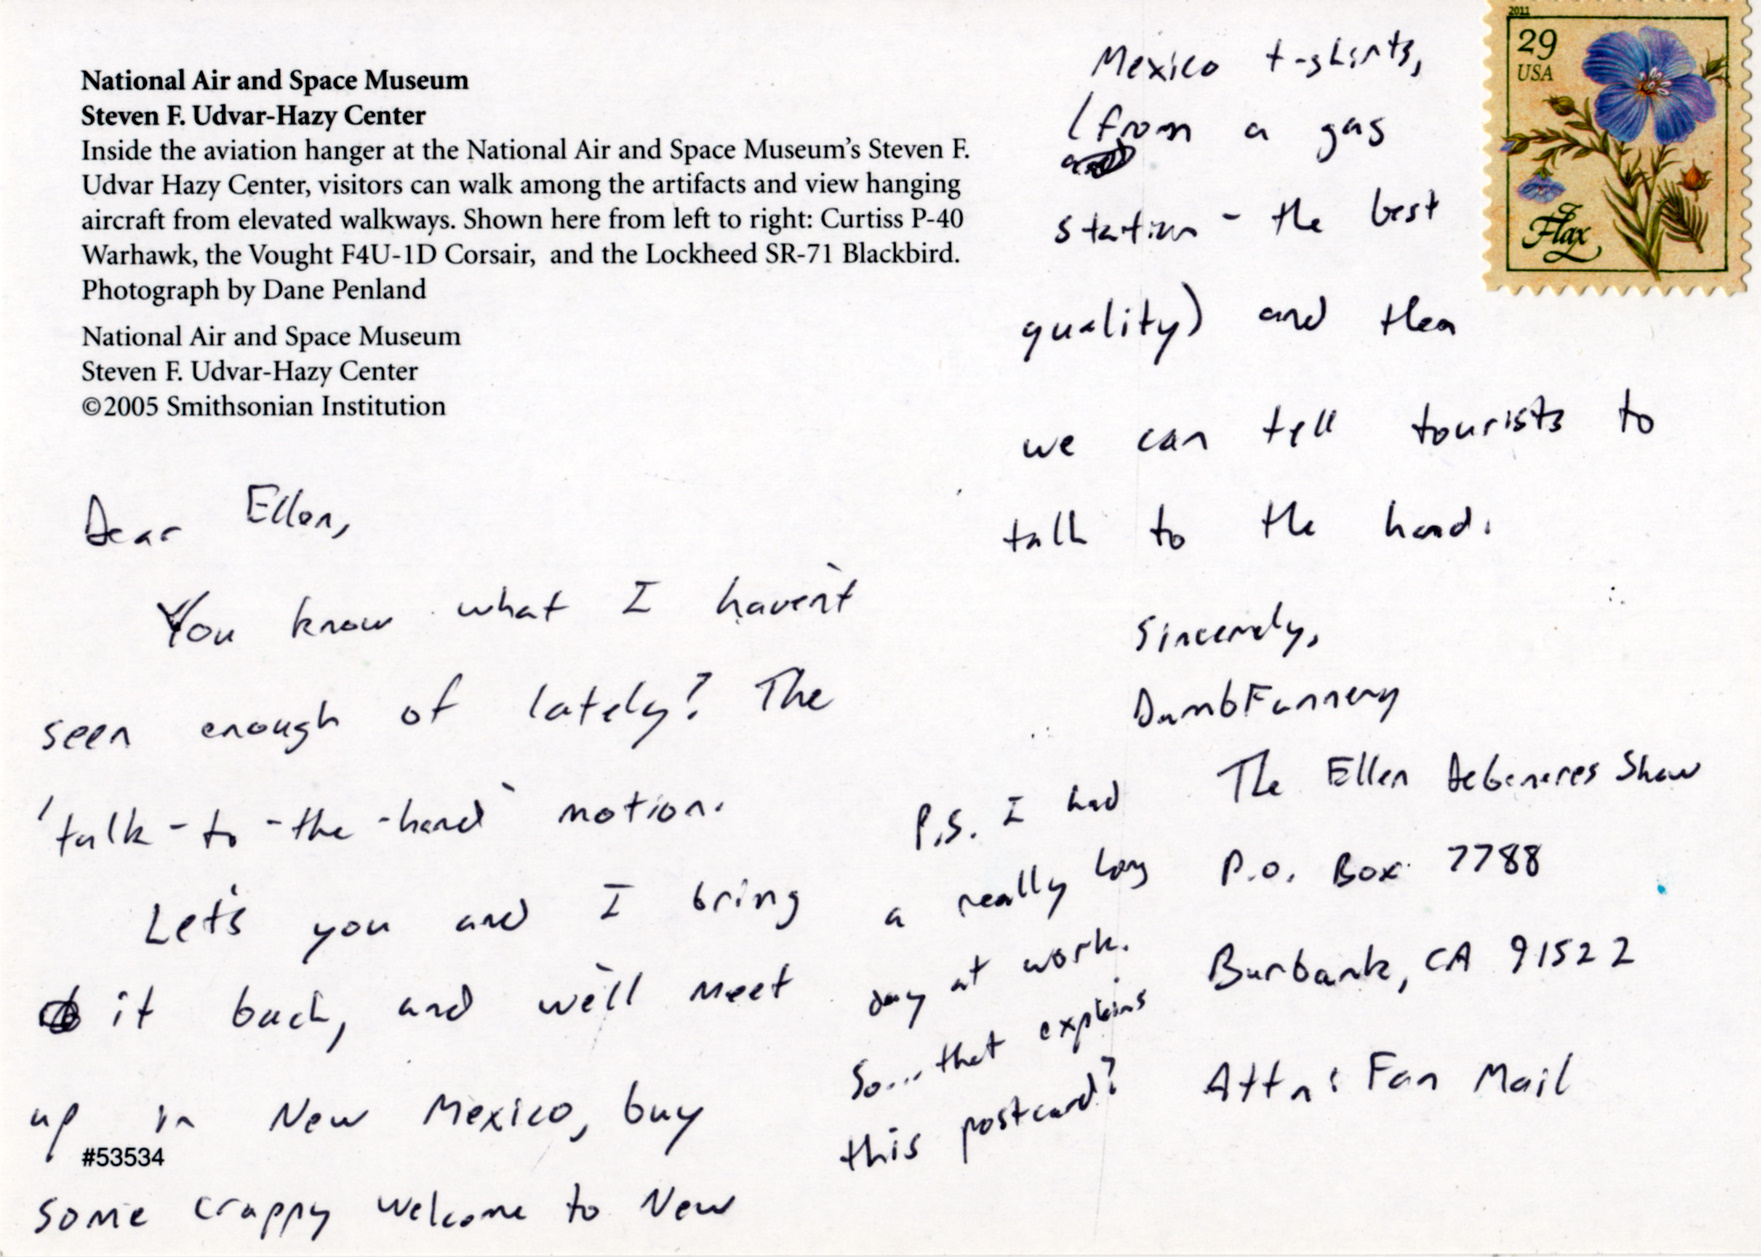 National Air and Space Museum
Steven F. Udvar-Hazy Center
Inside the aviation hanger at the National Air and Space Museum's Steven F.
Udvar Hazy Center, visitors can walk among the artifacts and view hanging
aircraft from elevated walkways. Shown here from left to right: Curtiss P-40
Warhawk, the Vought F4U-1D Corsair, and the Lockheed SR-71 Blackbird.
Photograph by Dane Penland
National Air and Space Museum
Steven F. Udvar-Hazy Center
©2005 Smithsonian Institution
Dear Ellen,
You know what I haven't
seen enough of lately? The
'talk-to-the-hand' motion.
Let's you and I bring
it back, and we'll meet
up in New Mexico, buy
#53534
some crappy Welcome to New
Mexico t-shirts,
(from a gas
station - the best
quality) and then
we can tell tourists to
talk to the hand.
Sincerely,
DumbFunnery
P.S. I had
a really long
day at work.
So.... that explains
this postcard?
The Ellen DeGeneres Show
P.O. Box 7788
Burbank, CA 91522
Attn: Fan Mail
2011
29
USA
Flax